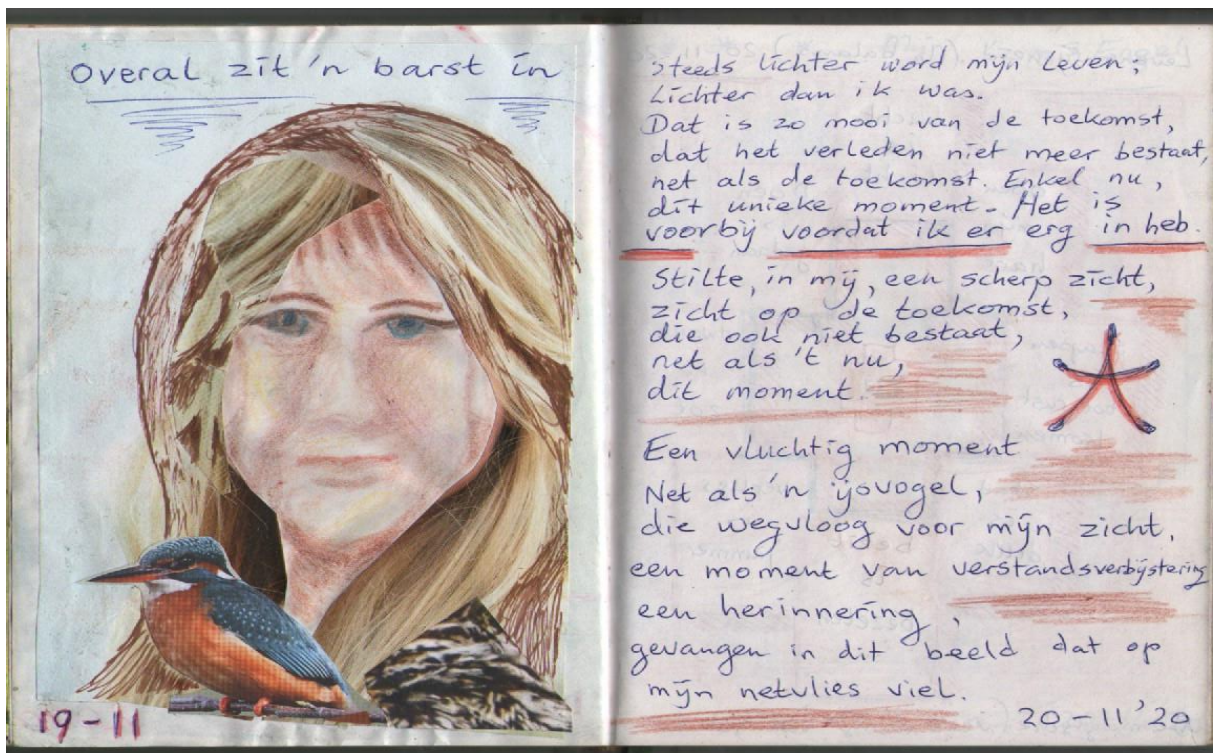 Overal zit 'n barst in
19-11
Steeds lichter word mijn leven;
Lichter dan ik was.
Dat is zo mooi van de toekomst,
dat het verleden niet meer bestaat,
net als de toekomst. Enkel nu,
dit unieke moment. Het is
voorbij voordat ik er erg in heb.
Stilte, in mij, een scherp zicht,
zicht op de toekomst,
die ook niet bestaat,
net als 't nu,
dit moment.
Een vluchtig moment
Net als 'n ijsvogel,
die wegvloog voor mijn zicht,
een moment van verstandsverbijstering
een herinnering,
gevangen in dit beeld dat op
mijn netvlies viel.
20-11 '20